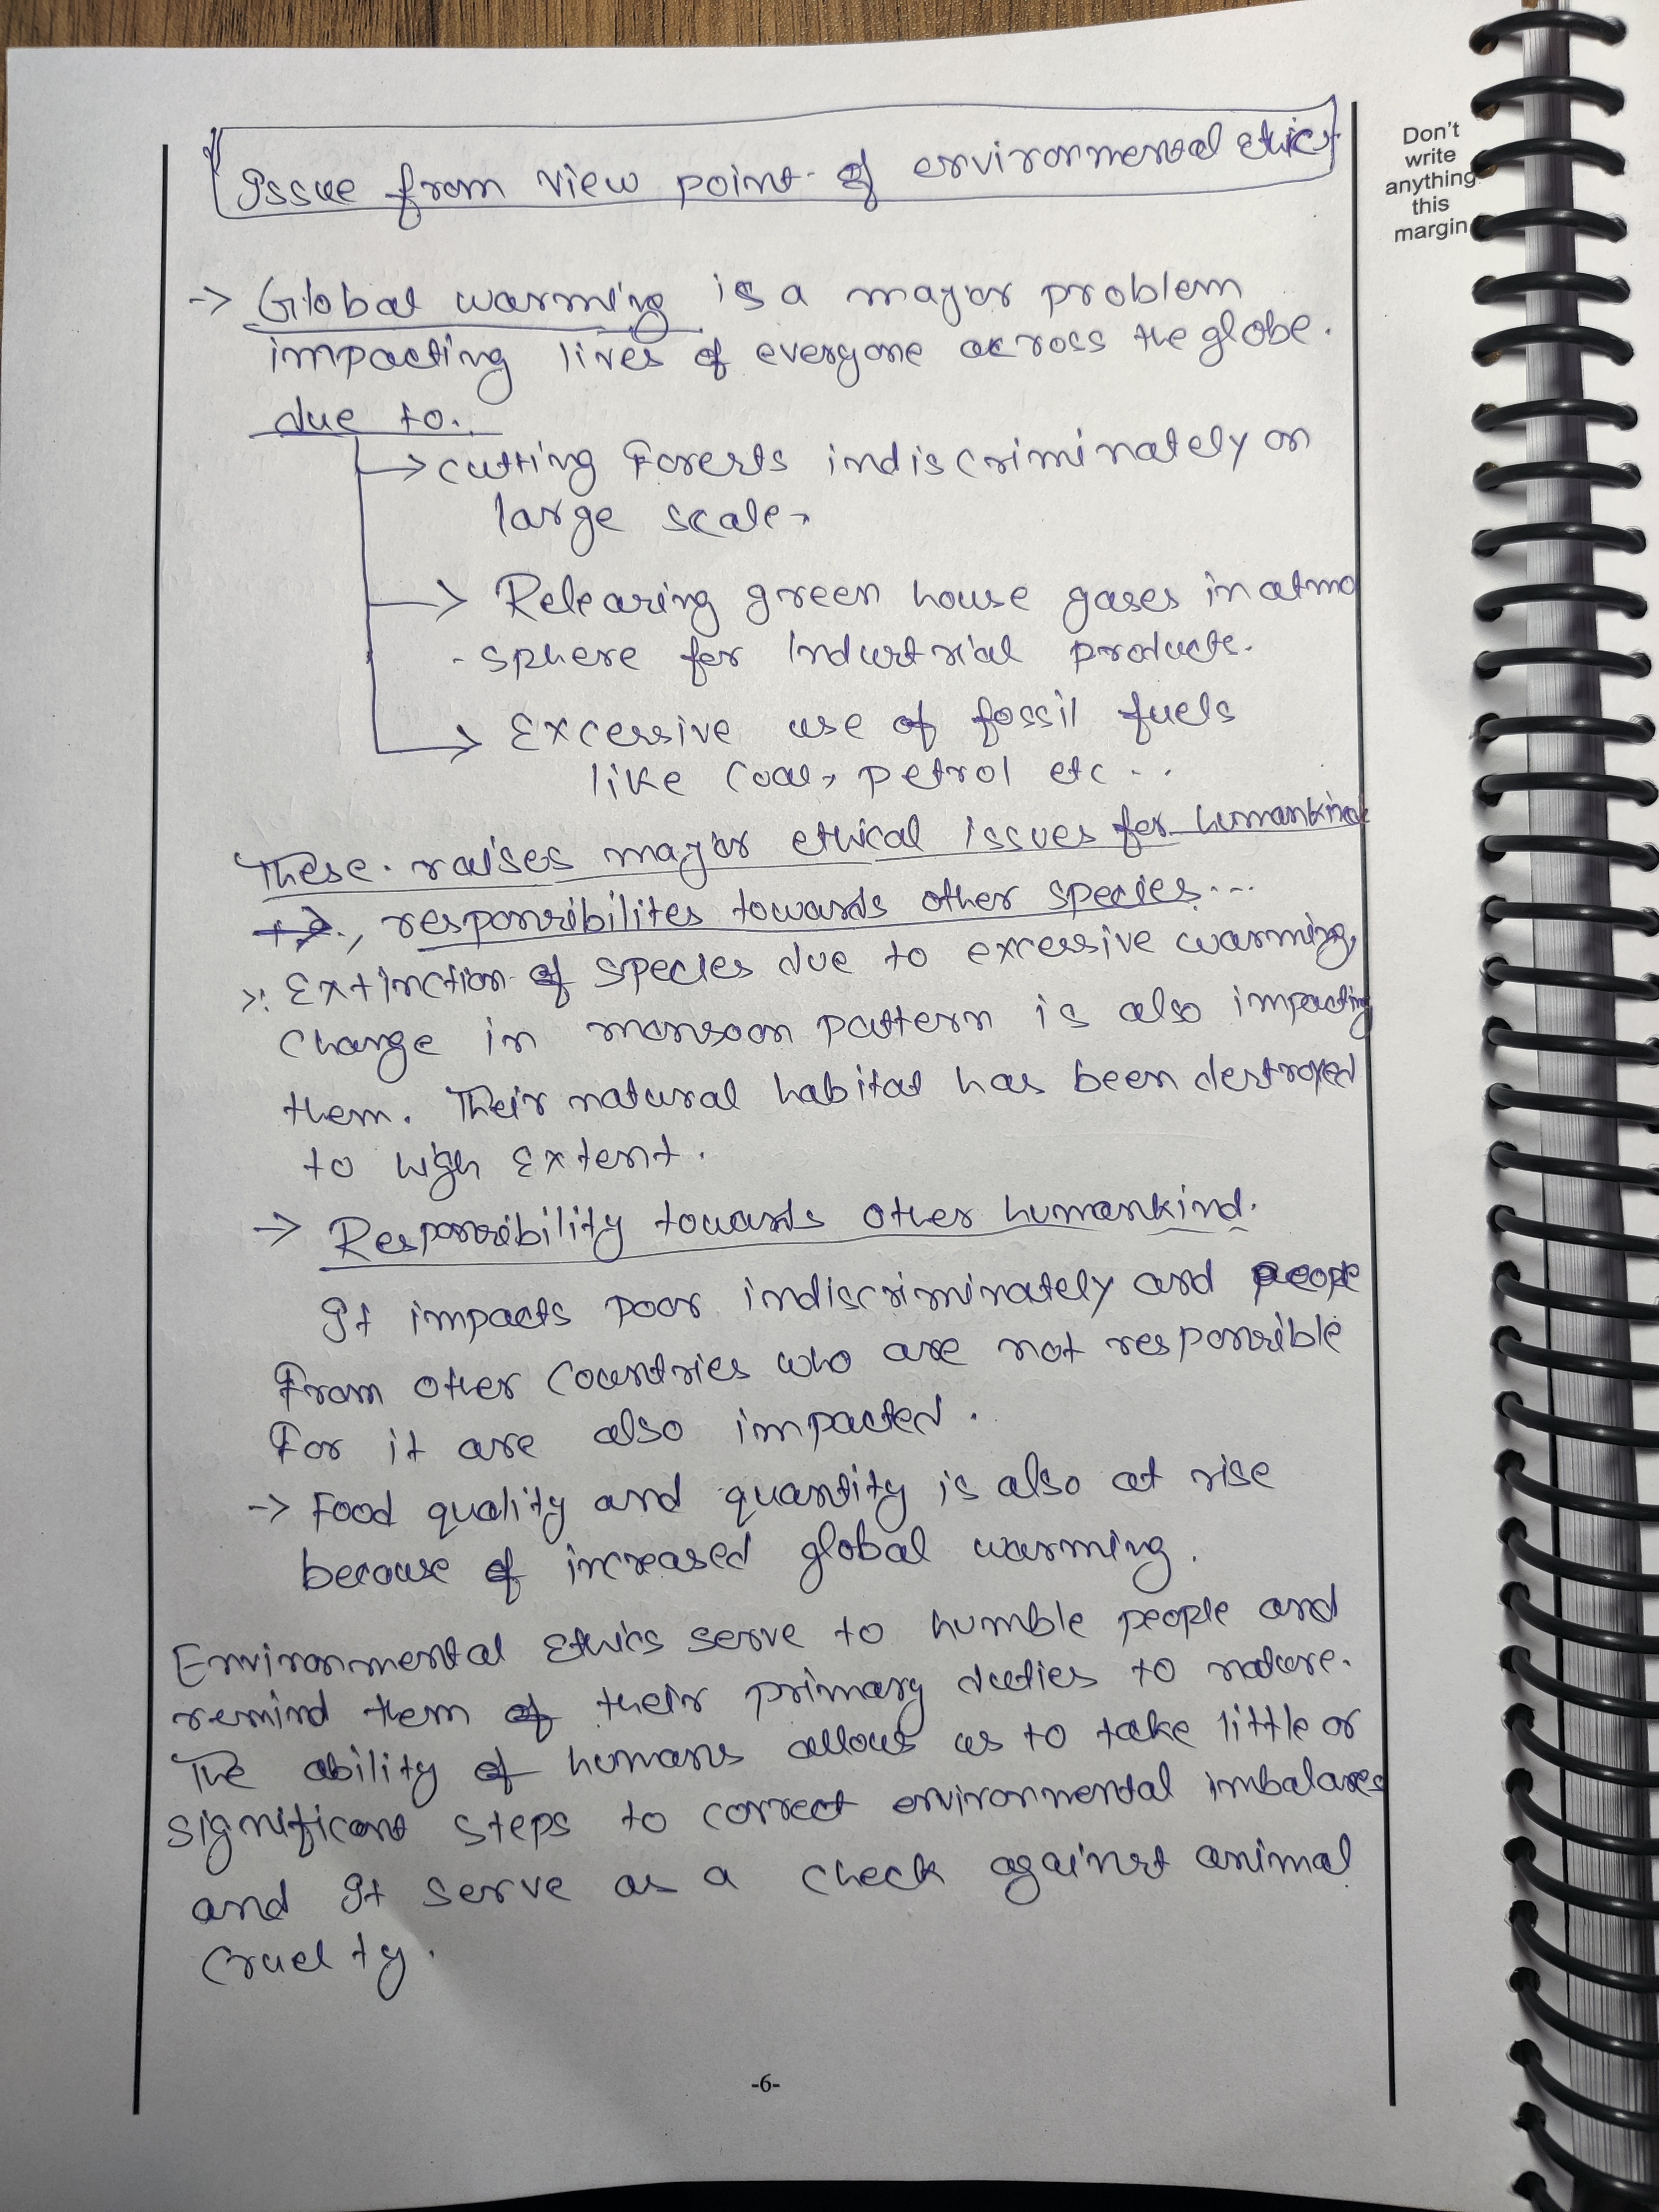 Issue from view point of environmental ethics
Don't
write
anything
this
margin
-> Global warming is a major problem
impacting lives of everyone across the globe.
due to.
-> cutting Forests indiscriminately on
large scale,
-> Releasing green house gases in atmo
-sphere for Industrial products.
-> Excessive use of fossil fuels
like coal, petrol etc...
These raises major ethical issues for humankind
responsibilites towards other species...
Extinction of species due to excessive warming,
change in monsoon pattern is also impacting
them. Their natural habitat has been destroyed
to high extent.
-> Responsibility towards other humankind.
It impacts poor indiscriminately and people
From other countries who are not responsible
For it are also impacted.
-> Food quality and quantity is also at rise
because of increased global warming.
Environmental Ethics serve to humble people and
remind them of their primary duties to nature.
The ability of humans allows us to take little or
significant steps to correct environmental imbalances
and It serve as a check against animal
cruelty.
-6-